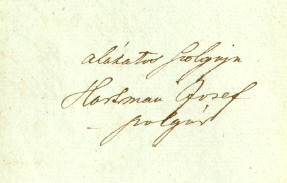 alázatos szolgája
Hartman Josef
polgár